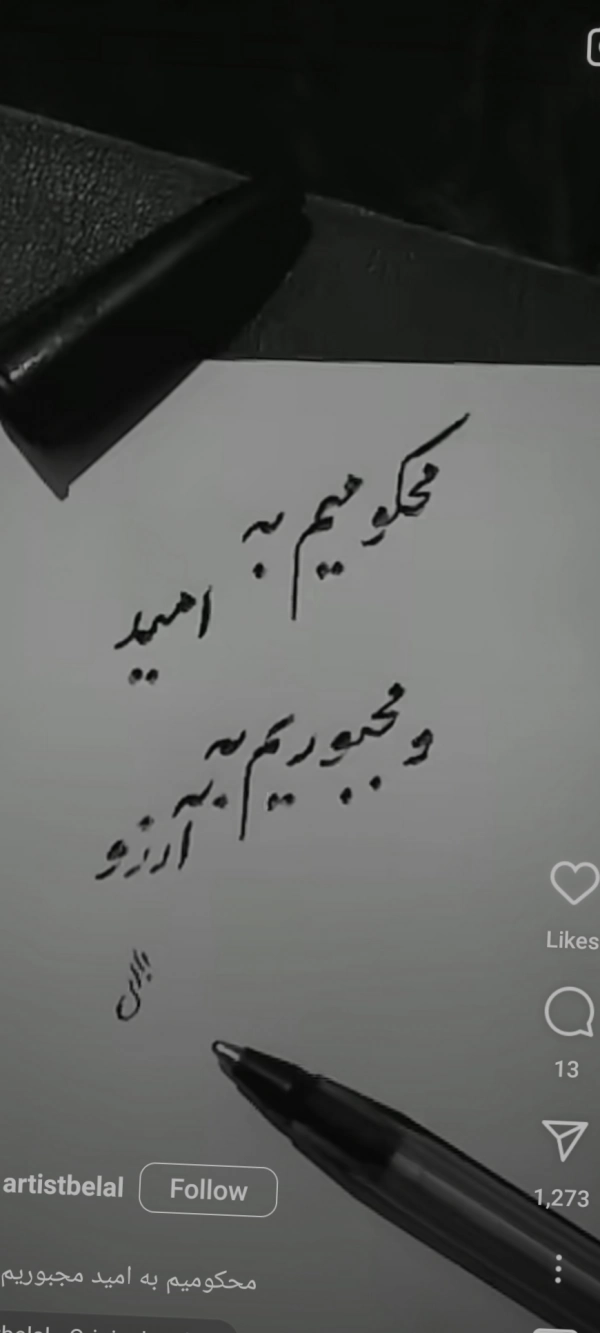 محکومیم به
امید
و مجبوریم به
آرزو
Likes
13
artistbelal
Follow
1,273
محکومیم به امید مجبوریم